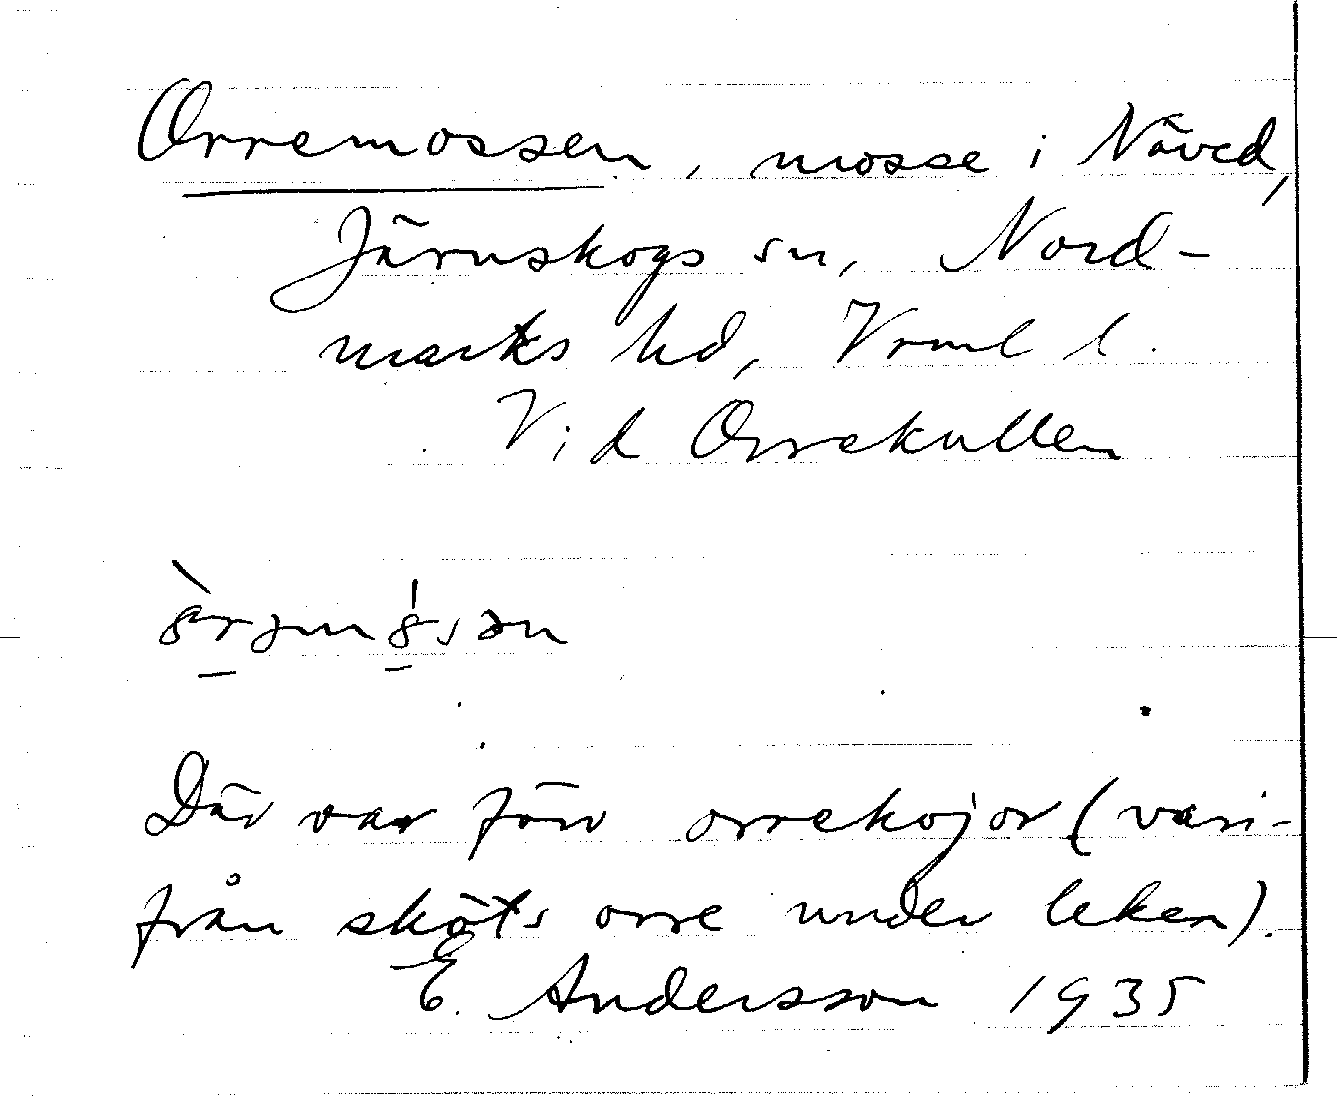 Orremossen, mosse i Näved,
Järnskogs sn, Nord-
marks hd, Vrml l.
Vid Orrekullen
Där var förr orrekojor (vari-
från sköts orre under leken).
E. Andersson 1935